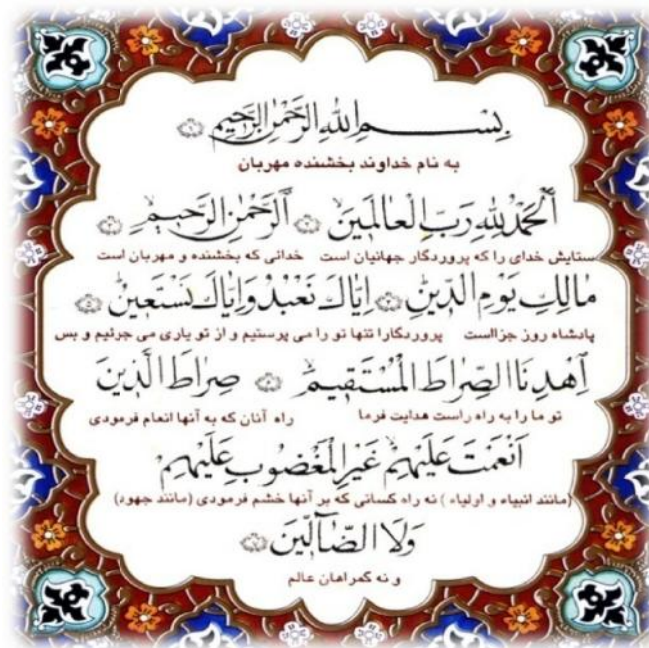 بِسْمِ اللهِ الرَّحْمٰنِ الرَّحیمِ ﴿۱﴾
به نام خداوند بخشنده مهربان
اَلْحَمْدُ لِلّٰهِ رَبِّ الْعالَمینَ ﴿۲﴾ اَلرَّحْمٰنِ الرَّحیمِ ﴿۳﴾
ستایش خدای را که پروردگار جهانیان است خدائی که بخشنده و مهربان است
مالِكِ یَوْمِ الدّینِ ﴿۴﴾ اِیّاكَ نَعْبُدُ وَ اِیّاكَ نَسْتَعینُ ﴿۵﴾
پادشاه روز جزااست پروردگارا تنها تو را می پرستیم و از تو یاری می جوئیم و بس
اِهْدِنَا الصِّراطَ الْمُسْتَقیمَ ﴿۶﴾ صِراطَ الَّذینَ
تو ما را به راه راست هدایت فرما راه آنان که به آنها انعام فرمودی
اَنْعَمْتَ عَلَیْهِمْ غَیْرِ الْمَغْضُوبِ عَلَیْهِمْ
(مانند انبیاء و اولیاء ) نه راه کسانی که بر آنها خشم فرمودی (مانند جهود)
وَلَا الضّآلّینَ ﴿۷﴾
و نه گمراهان عالم